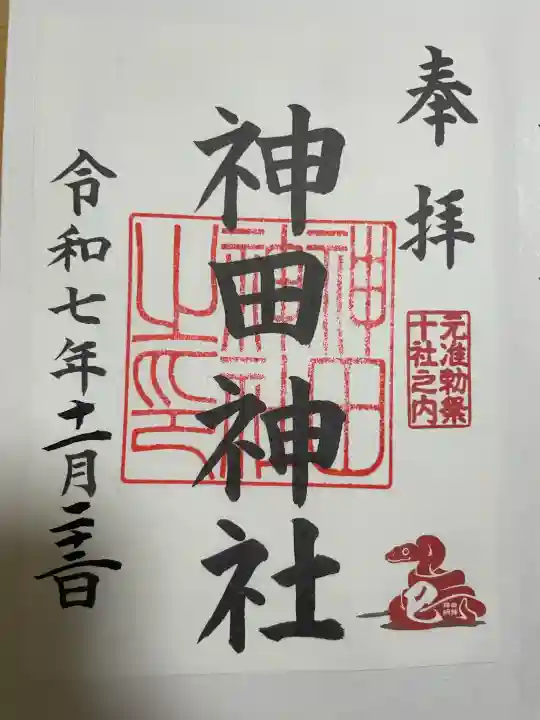 奉拝
元准勅祭
十社之内
巳
神田神社
神田
神社
之印
令和七年十一月二十三日